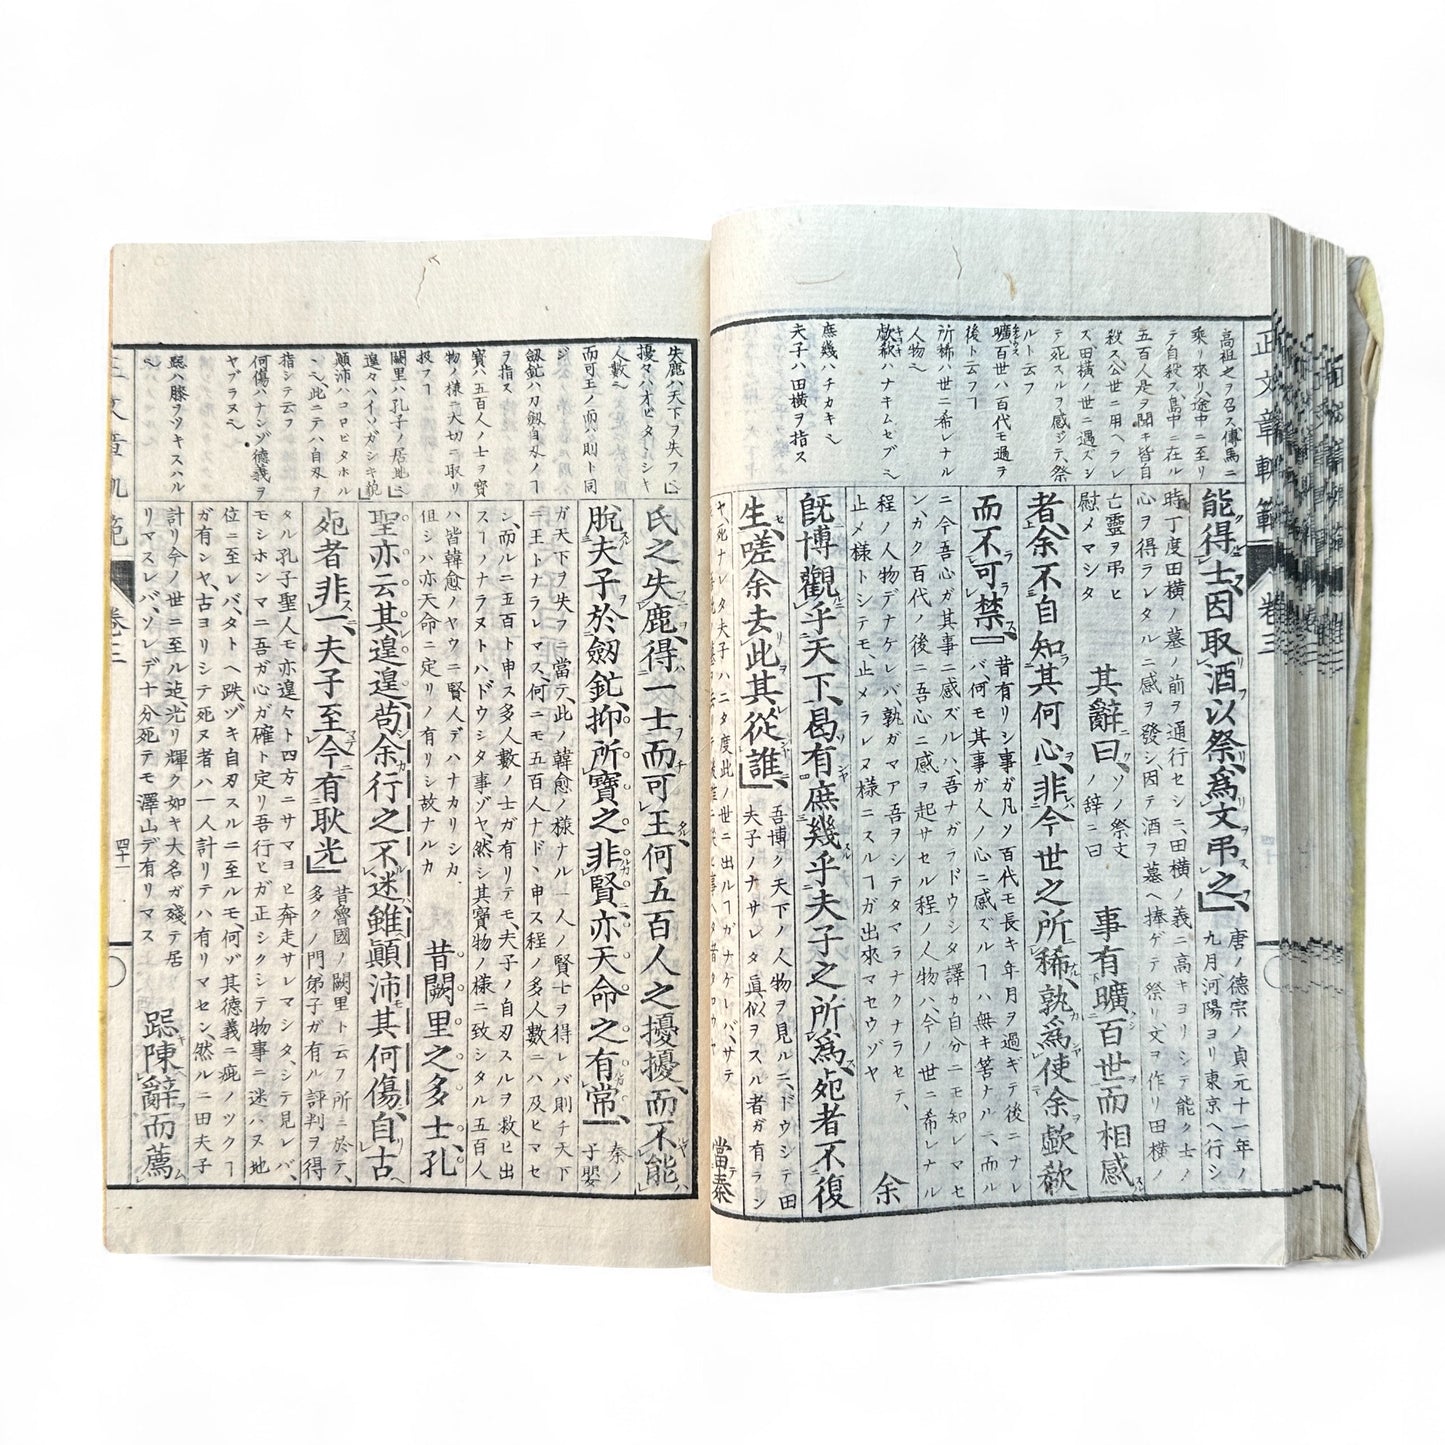 正文章軌範
卷三
四十
高祖之ヲ召ス傳馬ニ
乘リ來リ途中ニ至リ
テ自殺ス、島中ニ在ル
五百人是ヲ聞キ皆自
殺ス、公世ニ用ヘラレ
ズ、田横ノ世ニ遇ズシ
テ死スルヲ感ジテ、祭
ルト云フ
曠百世ハ百代モ過ヲ
後ト云フヿ
所稀ハ世ニ希レナル
人物
歔欷ハナキムセブ
庶幾ハチカキ
夫子ハ田横ヲ指ス
能得士、因取酒以祭、爲文弔之、
唐ノ德宗ノ貞元十一年ノ
九月河陽ヨリ東京ヘ行シ
時丁度田横ノ墓ノ前ヲ通行セシニ、田横ノ義ニ高キヨリシテ能ク士ノ
心ヲ得ラレタルニ感ヲ發シ、因テ酒ヲ墓ヘ捧ゲテ祭リ文ヲ作リ田横ノ
亡靈ヲ弔ヒ
慰メマシタ
其辭曰、
ソノ祭文
ノ辞ニ曰
事有曠百世而相感
者、余不自知其何心、非今世之所稀、孰爲使余歔欷
而不可禁、
昔有リシ事ガ凡ソ百代モ長キ年月ヲ過ギテ後ニナレ
バ、何モ其事ガ人ノ心ニ感ズルヿハ無キ筈ナルニ、而ル
ニ今吾心ガ其事ニ感ズルハ、吾ナガラドウシタ譯カ自分ニモ知レマセ
ン、カク百代ノ後ニ吾心ニ感ヲ起サセル程ノ人物ハ今ノ世ニ希レナル
程ノ人物デナケレバ、孰ガマア吾ヲシテタマラナクナラセテ、
止メ様トシテモ、止メラレヌ様ニスルヿガ出來マセウゾヤ
余
既博觀乎天下、曷有庶幾乎夫子之所爲、死者不復
生、嗟余去此其從誰、
吾博ク天下ノ人物ヲ見ルニ、ドウシテ田
夫子ノナサレタ眞似ヲスル者ガ有ラン
ヤ、死ナレタ夫子ハ二タ度此ノ世ニ出ルヿガナケレバ、サテ
當秦
失鹿ハ天下ヲ失フ
擾々ハオビタヾシキ
人數
而可王ノ而ハ則ト同
ジ
劔鋩ハ刀劔自刃ノヿ
ヲ指ス
寶ハ五百人ノ士ヲ寶
物ノ様ニ大切ニ取リ
扱フヿ
闕里ハ孔子ノ居地
遑々ハイソガシキ貌
顛沛ハコロビタホル
此ニテハ自刃ヲ
指シテ云フ
何傷ハナンゾ德義ヲ
ヤブラヌ
跽ハ膝ヲツキスハル
氏之失鹿、得一士而可王、何五百人之擾擾、而不能
脫夫子於劔鋩、抑所寶之非賢、亦天命之有常、
秦ノ
子嬰
ガ天下ヲ失フニ當テ、此ノ韓愈ノ様ナル一人ノ賢士ヲ得レバ則チ天下
ニ王トナラレマス、何ニモ五百人ナド、申ス程ノ多人數ニハ及ビマセ
シ、而ルニ五百ト申ス多人數ノ士ガ有リテモ、夫子ノ自刃スルヲ救ヒ出
スヿノナラヌトハ、ドウシタ事ゾヤ、然シ其寶物ノ様ニ致シタル五百人
ハ皆韓愈ノヤウニ賢人デハナカリシカ
但シハ亦天命ニ定リノ有リシ故ナルカ
昔闕里之多士、孔
聖亦云其遑遑、苟余行之不迷、雖顚沛其何傷、自古
死者非一、夫子至今有耿光、
昔魯國ノ闕里ト云フ所ニ於テ、
多クノ門弟子ガ有ル評判ヲ得
タル孔子聖人モ亦遑々ト四方ニサマヨヒ奔走サレマシタ、シテ見レバ、
モシホンマニ吾ガ心ガ確ト定リ吾行ヒガ正シクシテ物事ニ迷ハヌ地
位ニ至レバ、タトヘ跌ヅキ自刃スルニ至ルモ、何ゾ其德義ニ疵ノツクヿ
ガ有ンヤ、古ヨリシテ死ヌ者ハ一人計リテハ有リマセン、然ルニ田夫子
計リ今ノ世ニ至ル迄、光リ輝ク如キ大名ガ殘テ居
リマスレバ、ソレデ十分死テモ澤山デ有リマス
跽陳辭而薦
卷三
四十一